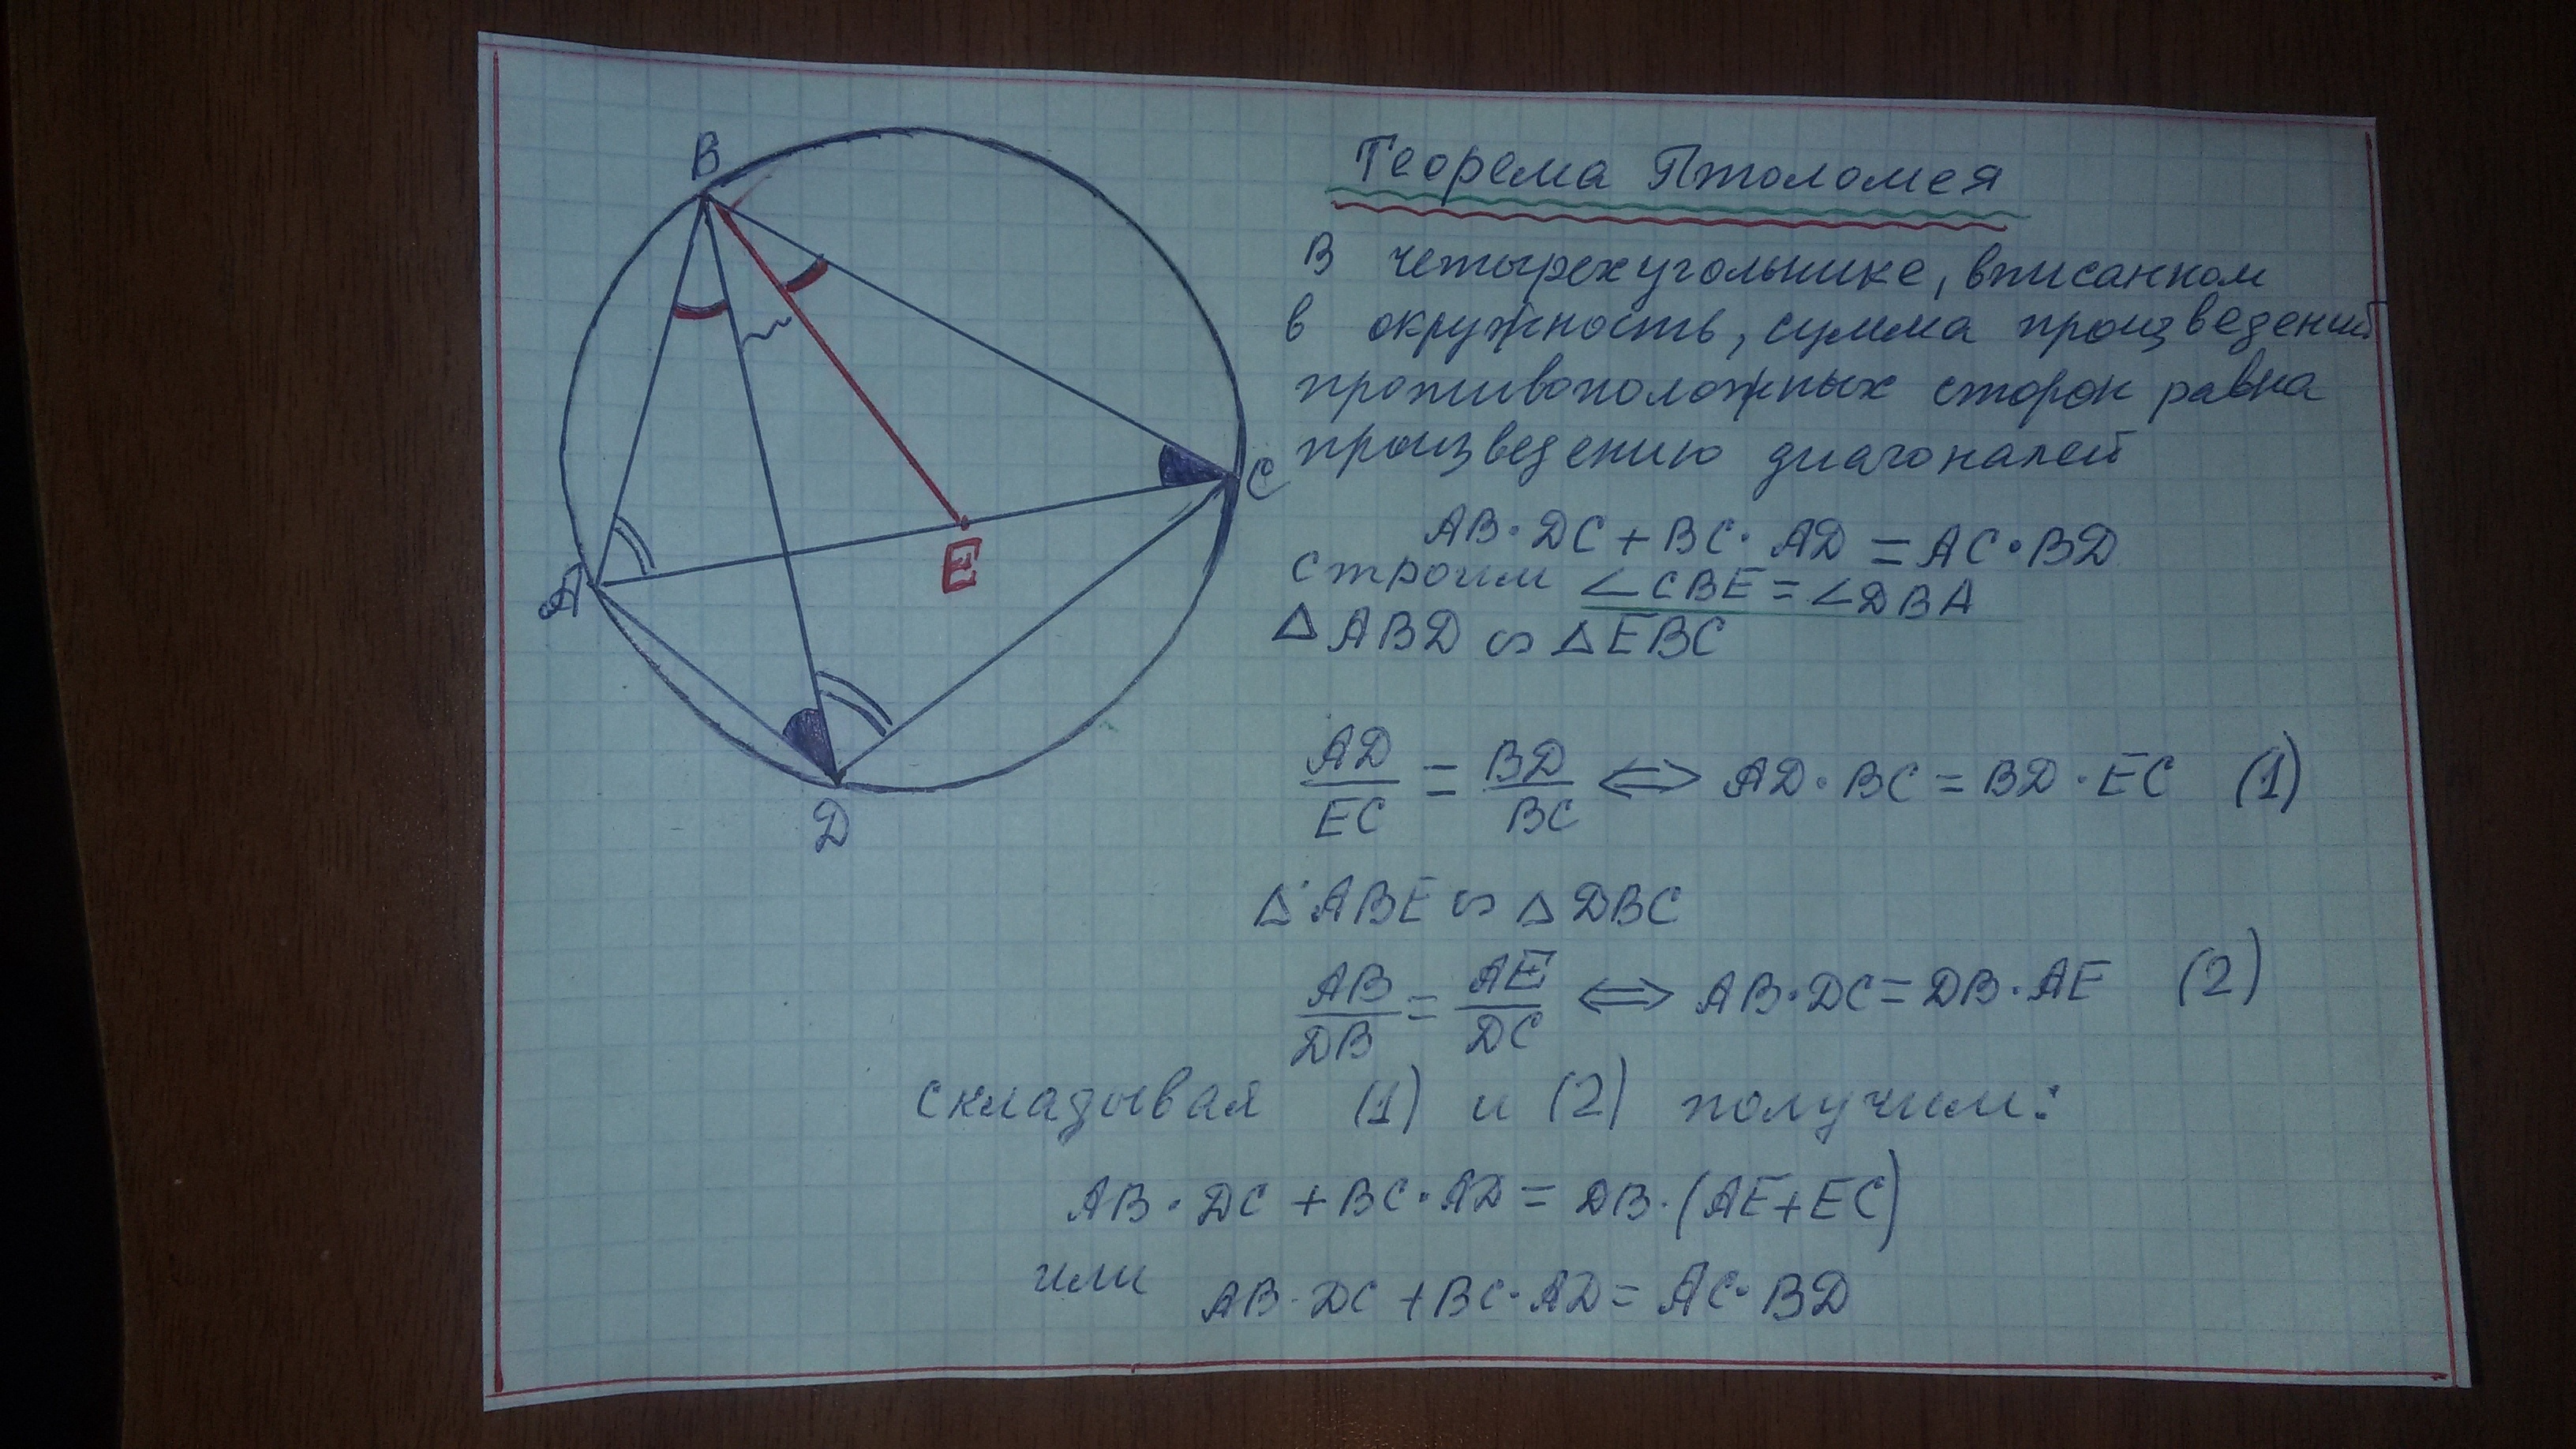 Теорема Птоломея
В четырехугольнике, вписанном
в окружность, сумма произведений
противоположных сторон равна
произведению диагоналей
AB·DC+BC·AD=AC·BD
строим ∠CBE=∠DBA
△ABD ∽ △EBC
AD/EC = BD/BC ⟺ AD·BC=BD·EC (1)
△ABE ∽ △DBC
AB/DB = AE/DC ⟺ AB·DC=DB·AE (2)
складывая (1) и (2) получим:
AB·DC+BC·AD=DB·(AE+EC)
или AB·DC+BC·AD=AC·BD
B
C
E
A
D